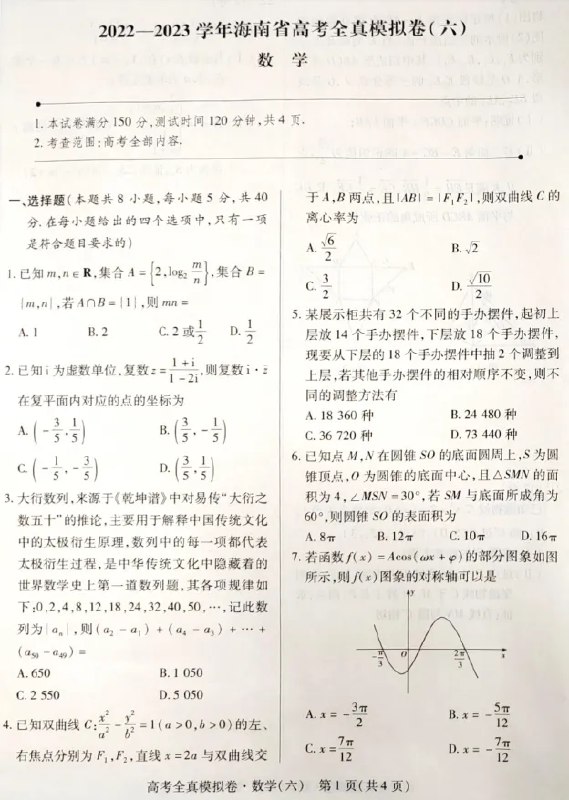 2022—2023 学年海南省高考全真模拟卷(六)
数 学
1. 本试卷满分 150 分,测试时间 120 分钟,共 4 页.
2. 考查范围:高考全部内容.
一、选择题(本题共 8 小题,每小题 5 分,共 40
分. 在每小题给出的四个选项中,只有一项
是符合题目要求的)
1. 已知 m,n ∈ R,集合 A = {2, log₂ m/n}, 集合 B =
{m,n}, 若 A∩B = {1}, 则 mn =
A. 1 B. 2 C. 2 或 1/2 D. 1/2
2. 已知 i 为虚数单位. 复数 z = (1+i)/(1-2i), 则复数 i · z̄
在复平面内对应的点的坐标为
A. (-3/5, 1/5) B. (3/5, -1/5)
C. (-1/5, -3/5) D. (3/5, 1/5)
3. 大衍数列,来源于《乾坤谱》中对易传“大衍之
数五十”的推论,主要用于解释中国传统文化
中的太极衍生原理,数列中的每一项都代表
太极衍生过程,是中华传统文化中隐藏着的
世界数学史上第一道数列题,其各项规律如
下:0,2,4,8,12,18,24,32,40,50,…, 记此数
列为{aₙ}, 则 (a₂ - a₁) + (a₄ - a₃) + … +
(a₅₀ - a₄₉) =
A. 650 B. 1 050
C. 2 550 D. 5 050
4. 已知双曲线 C: x²/a² - y²/b² = 1(a>0,b>0)的左、
右焦点分别为 F₁,F₂,直线 x = 2a 与双曲线交
于 A,B 两点,且|AB| = |F₁F₂|,则双曲线 C 的
离心率为
A. √6/2 B. √2
C. 3/2 D. √10/2
5. 某展示柜共有 32 个不同的手办摆件,起初上
层放 14 个手办摆件,下层放 18 个手办摆件,
现要从下层的 18 个手办摆件中抽 2 个调整到
上层,若其他手办摆件的相对顺序不变,则不
同的调整方法有
A. 18 360 种 B. 24 480 种
C. 36 720 种 D. 73 440 种
6. 已知点 M,N 在圆锥 SO 的底面圆周上,S 为圆
锥顶点,O 为圆锥的底面中心,且△SMN 的面
积为 4,∠MSN = 30°,若 SM 与底面所成角为
60°,则圆锥 SO 的表面积为
A. 8π B. 12π C. 10π D. 16π
7. 若函数 f(x) = Acos(ωx + φ) 的部分图象如图
所示,则 f(x) 图象的对称轴可以是
y
-π/3 O 2π/3 x
A. x = -3π/2 B. x = -5π/12
C. x = 7π/12 D. x = -7π/12
高考全真模拟卷 · 数学(六) 第 1 页(共 4 页)